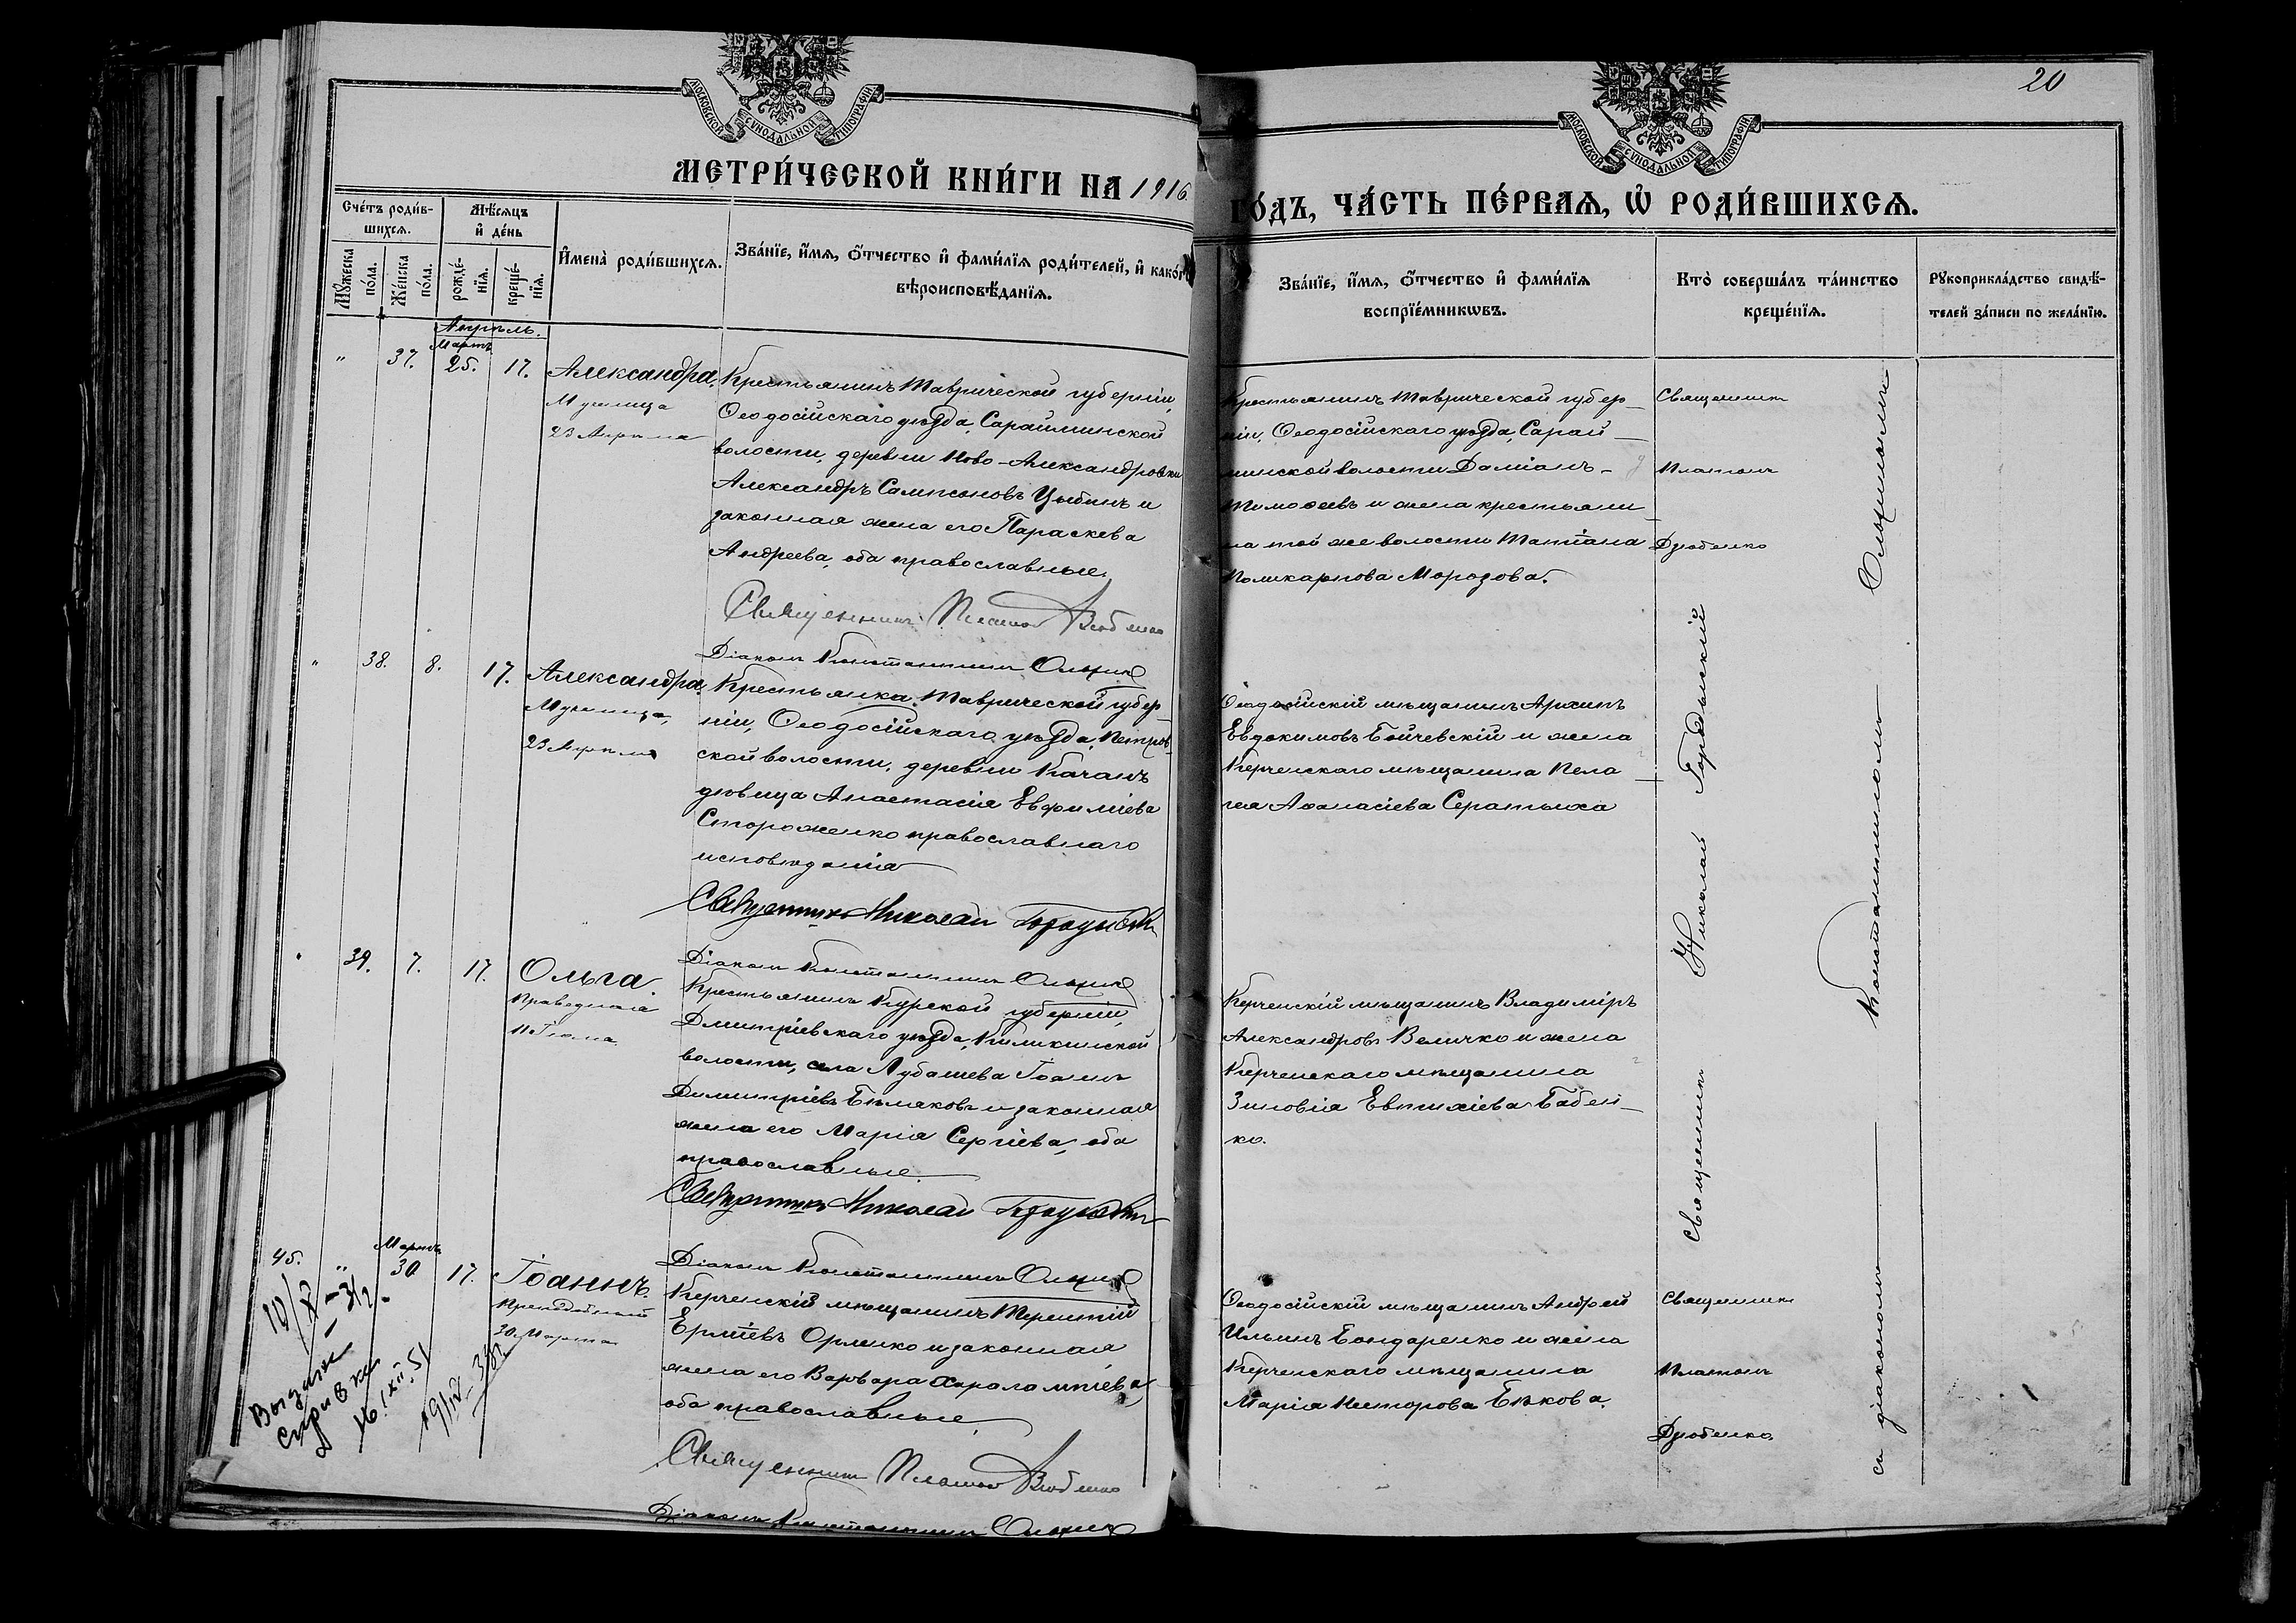 20
МОСКОВСКОЙ СѴНОДАЛЬНОЙ ТИПОГРАФІИ
МОСКОВСКОЙ СѴНОДАЛЬНОЙ ТИПОГРАФІИ
МЕТРИ́ЧЕСКОЙ КНИ́ГИ НА 1916
ГО́ДЪ, ЧА́СТЬ ПЕ́РВАЯ, Ѡ҆ РОДИ́ВШИХСЯ.
Сче́тъ роди́в-
шихся.
Му́жеска
по́ла.
Же́нска
по́ла.
Мѣ́сяцъ
и҆ де́нь
рожде́-
нїя.
креще́-
нїя.
И҆мена̀ роди́вшихся.
Зва́нїе, и҆́мя, ѻ҆́тчество и҆ фами́лїя роди́телей, и҆ како́г
вѣроисповѣ́данїя.
Зва́нїе, и҆́мя, ѻ҆́тчество и҆ фами́лїя
воспрїе́мникѡвъ.
Кто̀ соверша́лъ та́инство
креще́нїя.
Рꙋкоприкла́дство свидѣ́-
телей за́писи по жела́нїю.
Апрѣль.
Мартъ
" 37. 25. 17.
Александра.
Мученица
23 Апрѣля
Крестьянинъ Таврической губерніи,
Ѳеодосійскаго уѣзда, Сарайминской
волости, деревни Ново-Александровки
Александръ Сампсоновъ Цыбинъ и
законная жена его Параскева
Андреева, оба православные.
Священникъ Платонъ Дзюбенко
Діаконъ Константинъ
Крестьянинъ Таврической губер-
ніи, Ѳеодосійскаго уѣзда, Сарай-
минской волости Даміанъ
Тимоѳеевъ и жена крестьяни-
на той же волости Татіана
Поликарпова Морозова.
Священникъ
Платонъ
Дзюбенко
" 38. 8. 17.
Александра.
Мученица,
23 Апрѣля
Крестьянка Таврической губер-
ніи, Ѳеодосійскаго уѣзда, Петров-
ской волости, деревни Качанъ
дѣвица Анастасія Евфиміева
Стороженко православнаго
исповѣданія
Священникъ Николай
Діаконъ Константинъ
Ѳеодосійскій мѣщанинъ Архипъ
Евдокимовъ Бойчевскій и жена
Керченскаго мѣщанина Пела-
гея Аѳанасіева
Священникъ Николай
съ діакономъ Константиномъ
" 39. 7. 17.
Ольга.
Праведная
11 Іюля
Крестьянинъ Курской губерніи,
Дмитріевскаго уѣзда,
волости, села Лубашева Іоаннъ
Димитріевъ Бѣляковъ и законная
жена его Марія Сергіева, оба
православные
Священникъ Николай
Діаконъ Константинъ
Керченскій мѣщанинъ Владиміръ
Александровъ Величко и жена
Керченскаго мѣщанина
Зиновія Евтихіева Бабен-
ко.
Мартъ
45. " 30 17.
Іоаннъ.
Преподобный
30 Марта
Керченскій мѣщанинъ Терентій
Орленко и законная
жена его Варвара Харалампіева,
оба православные
Священникъ Платонъ Дзюбенко
Діаконъ Константинъ
Ѳеодосійскій мѣщанинъ Андрей
Ильинъ Бондаренко и жена
Керченскаго мѣщанина
Марія Несторова Быкова.
Священникъ
Платонъ
Дзюбенко